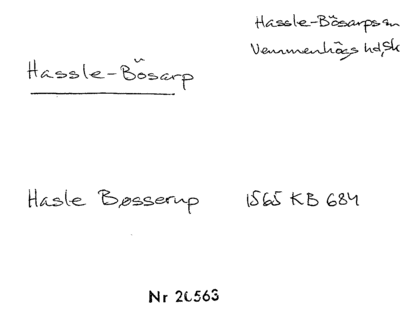 Hassle-Bösarps sn
Vemmenhögs hd, Sk
Hassle-Bösarp
Hasle Bøsserup 1565 KB 684
Nr 20563